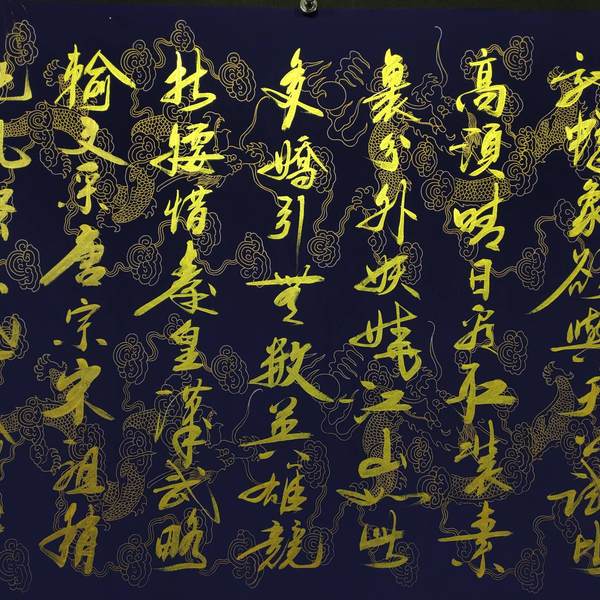 馳蠟象欲與天公試比
高須晴日看紅裝素
裹分外妖嬈江山如此
多嬌引無數英雄競
折腰惜秦皇漢武略
輸文采唐宗宋祖稍